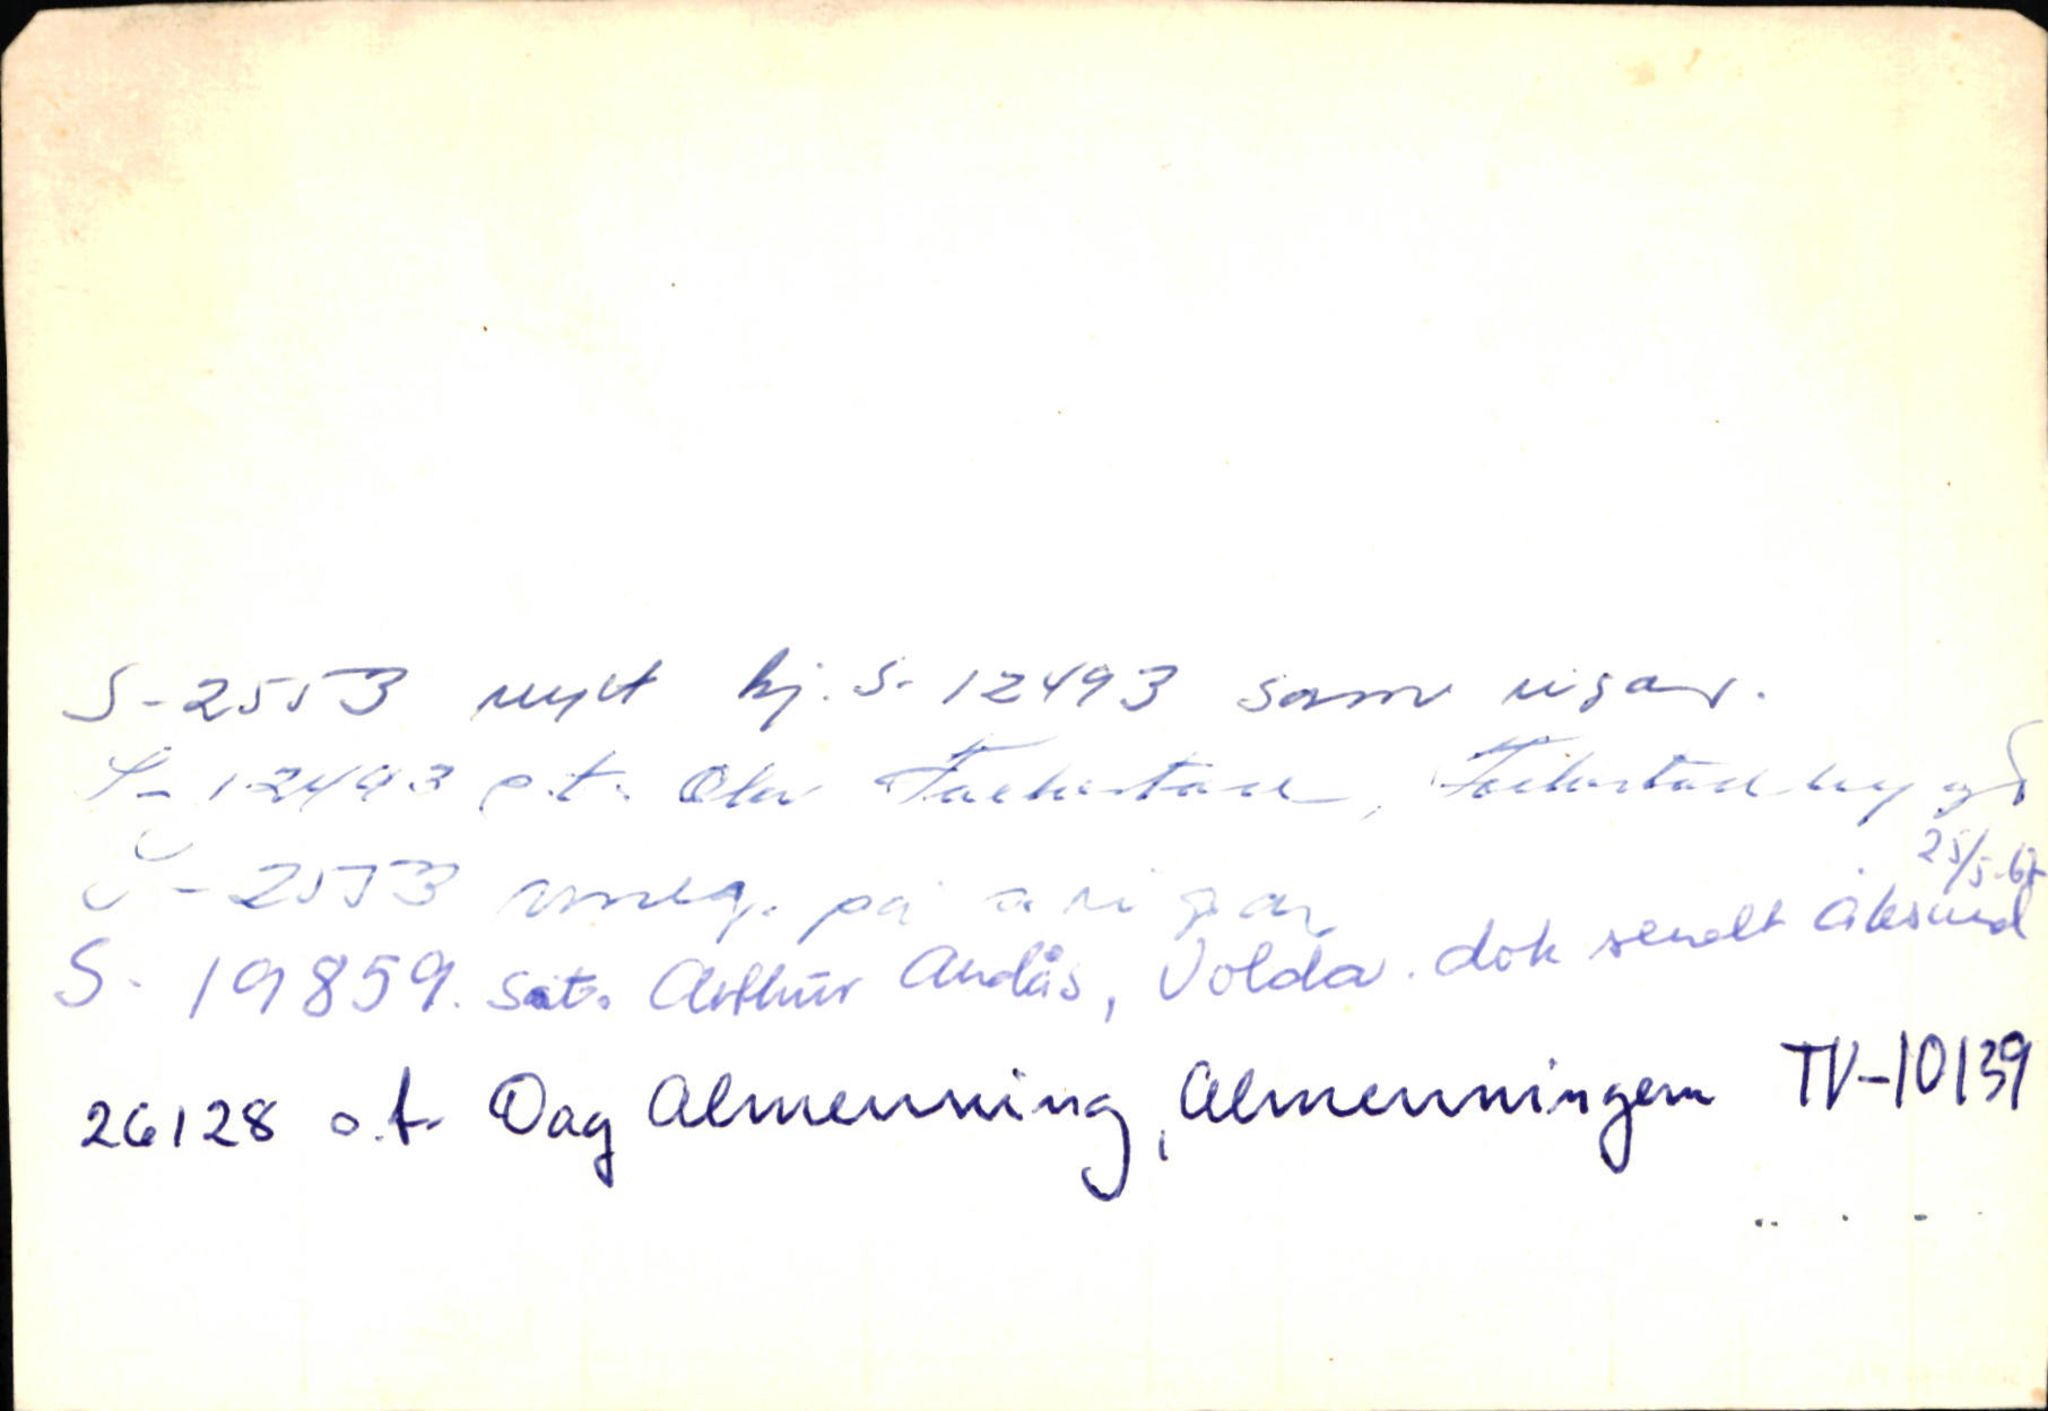 S-2553 nytt kj. S-12493 som vigar.
S-12493 o.t. Olav Fiskerstad,
S-2553 omreg. på a vigar
25/5-67
S-19859. sat. Arthur Andås, Volda. dok sendt Ålesund
26128 o.t. Dag Almenning, Almenningen TV-10139